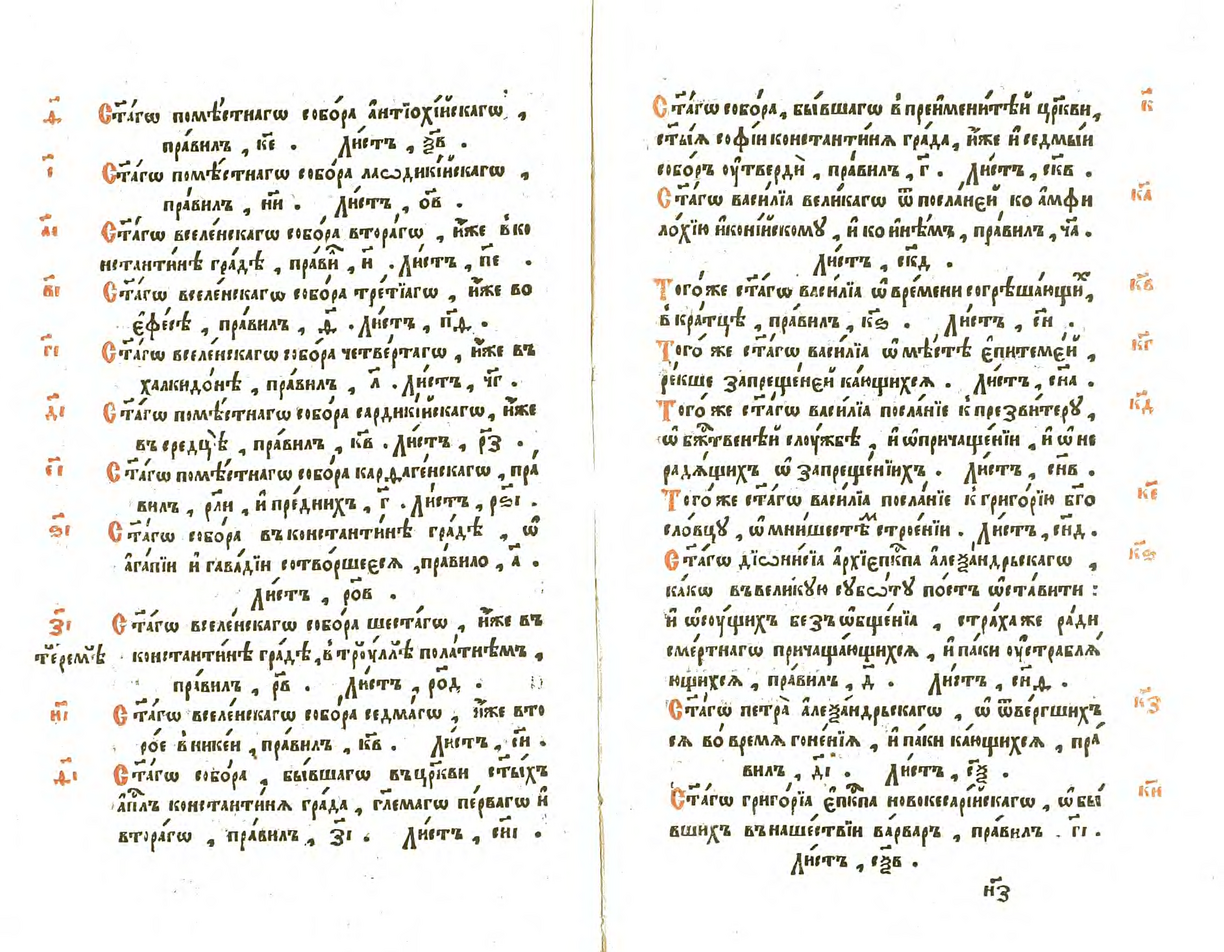 ѳ҃ Ст҃а́гѡ помѣ́стнагѡ собо́ра а҆нтїохі́йскагѡ ,
пра́вилъ , к҃е . Ли́стъ , ѯ҃в .
і҃ Ст҃а́гѡ помѣ́стнагѡ собо́ра лаѡдикі́йскагѡ ,
пра́вилъ , н҃и . Ли́стъ , о҃в .
а҃і Ст҃а́гѡ вселе́нскагѡ собо́ра втора́гѡ , и҆́же в ко
нстанти́нѣ гра́дѣ , пра́ви , и҃ . Ли́стъ , п҃е .
в҃і Ст҃а́гѡ вселе́нскагѡ собо́ра тре́тїагѡ , и҆́же во
є҆фе́сѣ , пра́вилъ , ѳ҃ . Ли́стъ , п҃ѳ .
г҃і Ст҃а́гѡ вселе́нскагѡ собо́ра четве́ртагѡ , и҆́же въ
халкидо́нѣ , пра́вилъ , л҃ . Ли́стъ , ч҃г .
д҃і Ст҃а́гѡ помѣ́стнагѡ собо́ра сардикі́йскагѡ , и҆́же
въ средцѣ̀ , пра́вилъ , к҃в . Ли́стъ , р҃з .
е҃і Ст҃а́гѡ помѣ́стнагѡ собо́ра карѳаге́нскагѡ , пра́
вилъ , рл҃и , и҆ пре́днихъ , г҃ . Ли́стъ , рѕ҃і .
ѕ҃і Ст҃а́гѡ собо́ра въ константи́нѣ гра́дѣ , ѡ҆
а҆га́пїи и҆ гава́дїи сотво́ршеєся , пра́вило , а҃ .
Ли́стъ , ро҃в .
з҃і Ст҃а́гѡ вселе́нскагѡ собо́ра шеста́гѡ , и҆́же въ
те́ремѣ константи́нѣ гра́дѣ , в тро́уллѣ пола́тнѣмъ ,
пра́вилъ , р҃в . Ли́стъ , ро҃д .
и҃і Ст҃а́гѡ вселе́нскагѡ собо́ра седма́гѡ , и҆́же вто
ро́е в нике́и , пра́вилъ , к҃в . Ли́стъ , с҃и .
ѳ҃і Ст҃а́гѡ собо́ра , бы́вшагѡ въ цр҃кви ст҃ы́хъ
а҆пⷭ҇лъ константи́нѧ гра́да , гл҃емагѡ пе́рвагѡ и҆
втора́гѡ , пра́вилъ , з҃і . Ли́стъ , си҃і .
Ст҃а́гѡ собо́ра , бы́вшагѡ в преимени́тѣй цр҃кви , к҃
ст҃ы́ѧ софі́и константи́нѧ гра́да , и҆́же и҆ седмы́й
собо́ръ оу҆твердѝ , пра́вилъ , г҃ . Ли́стъ , ск҃в .
Ст҃а́гѡ васи́лїа вели́кагѡ ѿ посла́нєй ко а҆мфи к҃а
ло́хїю и҆коні́йскому , и҆ ко и҆нѣ́мъ , пра́вилъ , ч҃а .
Ли́стъ , ск҃д .
Того́ же ст҃а́гѡ васи́лїа ѡ҆ вре́мени согрѣша́ющиⷯ , к҃в
в кра́тцѣ , пра́вилъ , к҃ѕ . Ли́стъ , с҃н .
Того́ же ст҃а́гѡ васи́лїа ѡ҆ мѣ́стѣ є҆питемє́й , к҃г
ре́кше запреще́нєй ка́ющихсѧ . Ли́стъ , сн҃а .
Того́ же ст҃а́гѡ васи́лїа посла́нїе к презви́теру , к҃д
ѡ҆ бжⷭ҇твенѣй слоу́жбѣ , и҆ ѡ҆ причаще́нїи , и҆ ѡ҆ не
радѧ́щихъ ѡ҆ запреще́нїихъ . Ли́стъ , сн҃в .
Того́ же ст҃а́гѡ васи́лїа посла́нїе к григо́рїю бг҃о к҃е
сло́вцу , ѡ҆ мни́шестѣⷨ строе́нїи . Ли́стъ , сн҃д .
Ст҃а́гѡ дїѡни́сїа а҆рхїєпⷭ҇кпа а҆леѯа́ндрьскагѡ , к҃ѕ
ка́кѡ въ вели́кую суббѡ́ту по́стъ ѡ҆ста́вити :
и҆ ѡ҆ соу́щихъ безъ ѡ҆бще́нїа , стра́ха же ра́ди
сме́ртнагѡ причаща́ющихсѧ , и҆ па́ки оу҆страблѧ́
ющихсѧ , пра́вилъ , д҃ . Ли́стъ , сн҃ѳ .
Ст҃а́гѡ петра̀ а҆леѯа́ндрьскагѡ , ѡ҆ ѿве́ргшихъ к҃з
сѧ во вре́мѧ гоне́нїѧ , и҆ па́ки ка́ющихсѧ , пра́
вилъ , д҃і . Ли́стъ , с҃ѯ .
Ст҃а́гѡ григо́рїа є҆пⷭ҇кпа новокесарі́йскагѡ , ѡ҆ бы́ к҃и
вшихъ въ наше́ствїи ва́рваръ , пра́вилъ . г҃і .
Ли́стъ , сѯ҃в .
н҃з